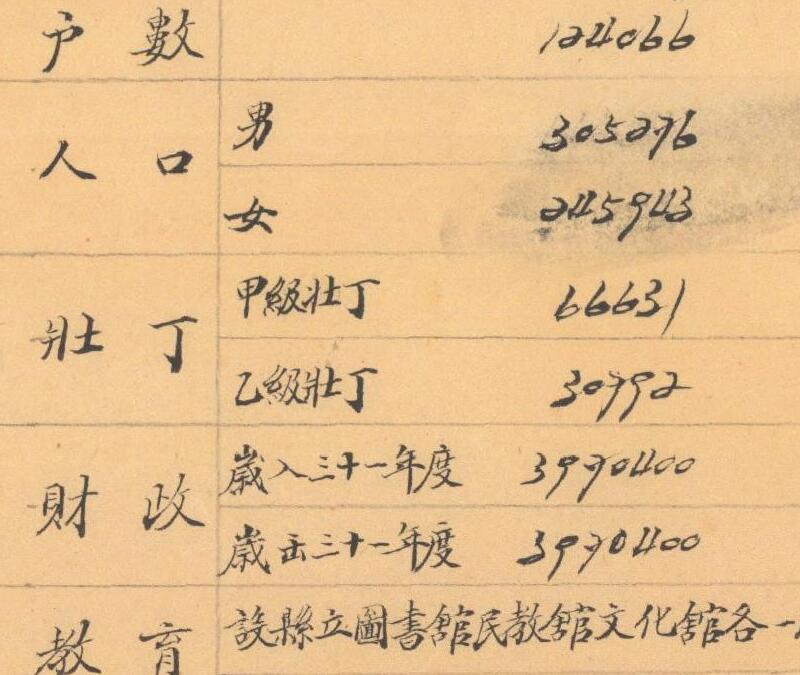 戶數 124066
人口 男 305276
女 245943
壯丁 甲級壯丁 66631
乙級壯丁 30792
財政 歲入三十一年度 3970400
歲出三十一年度 3970400
教育 設縣立圖書館民教館文化館各一